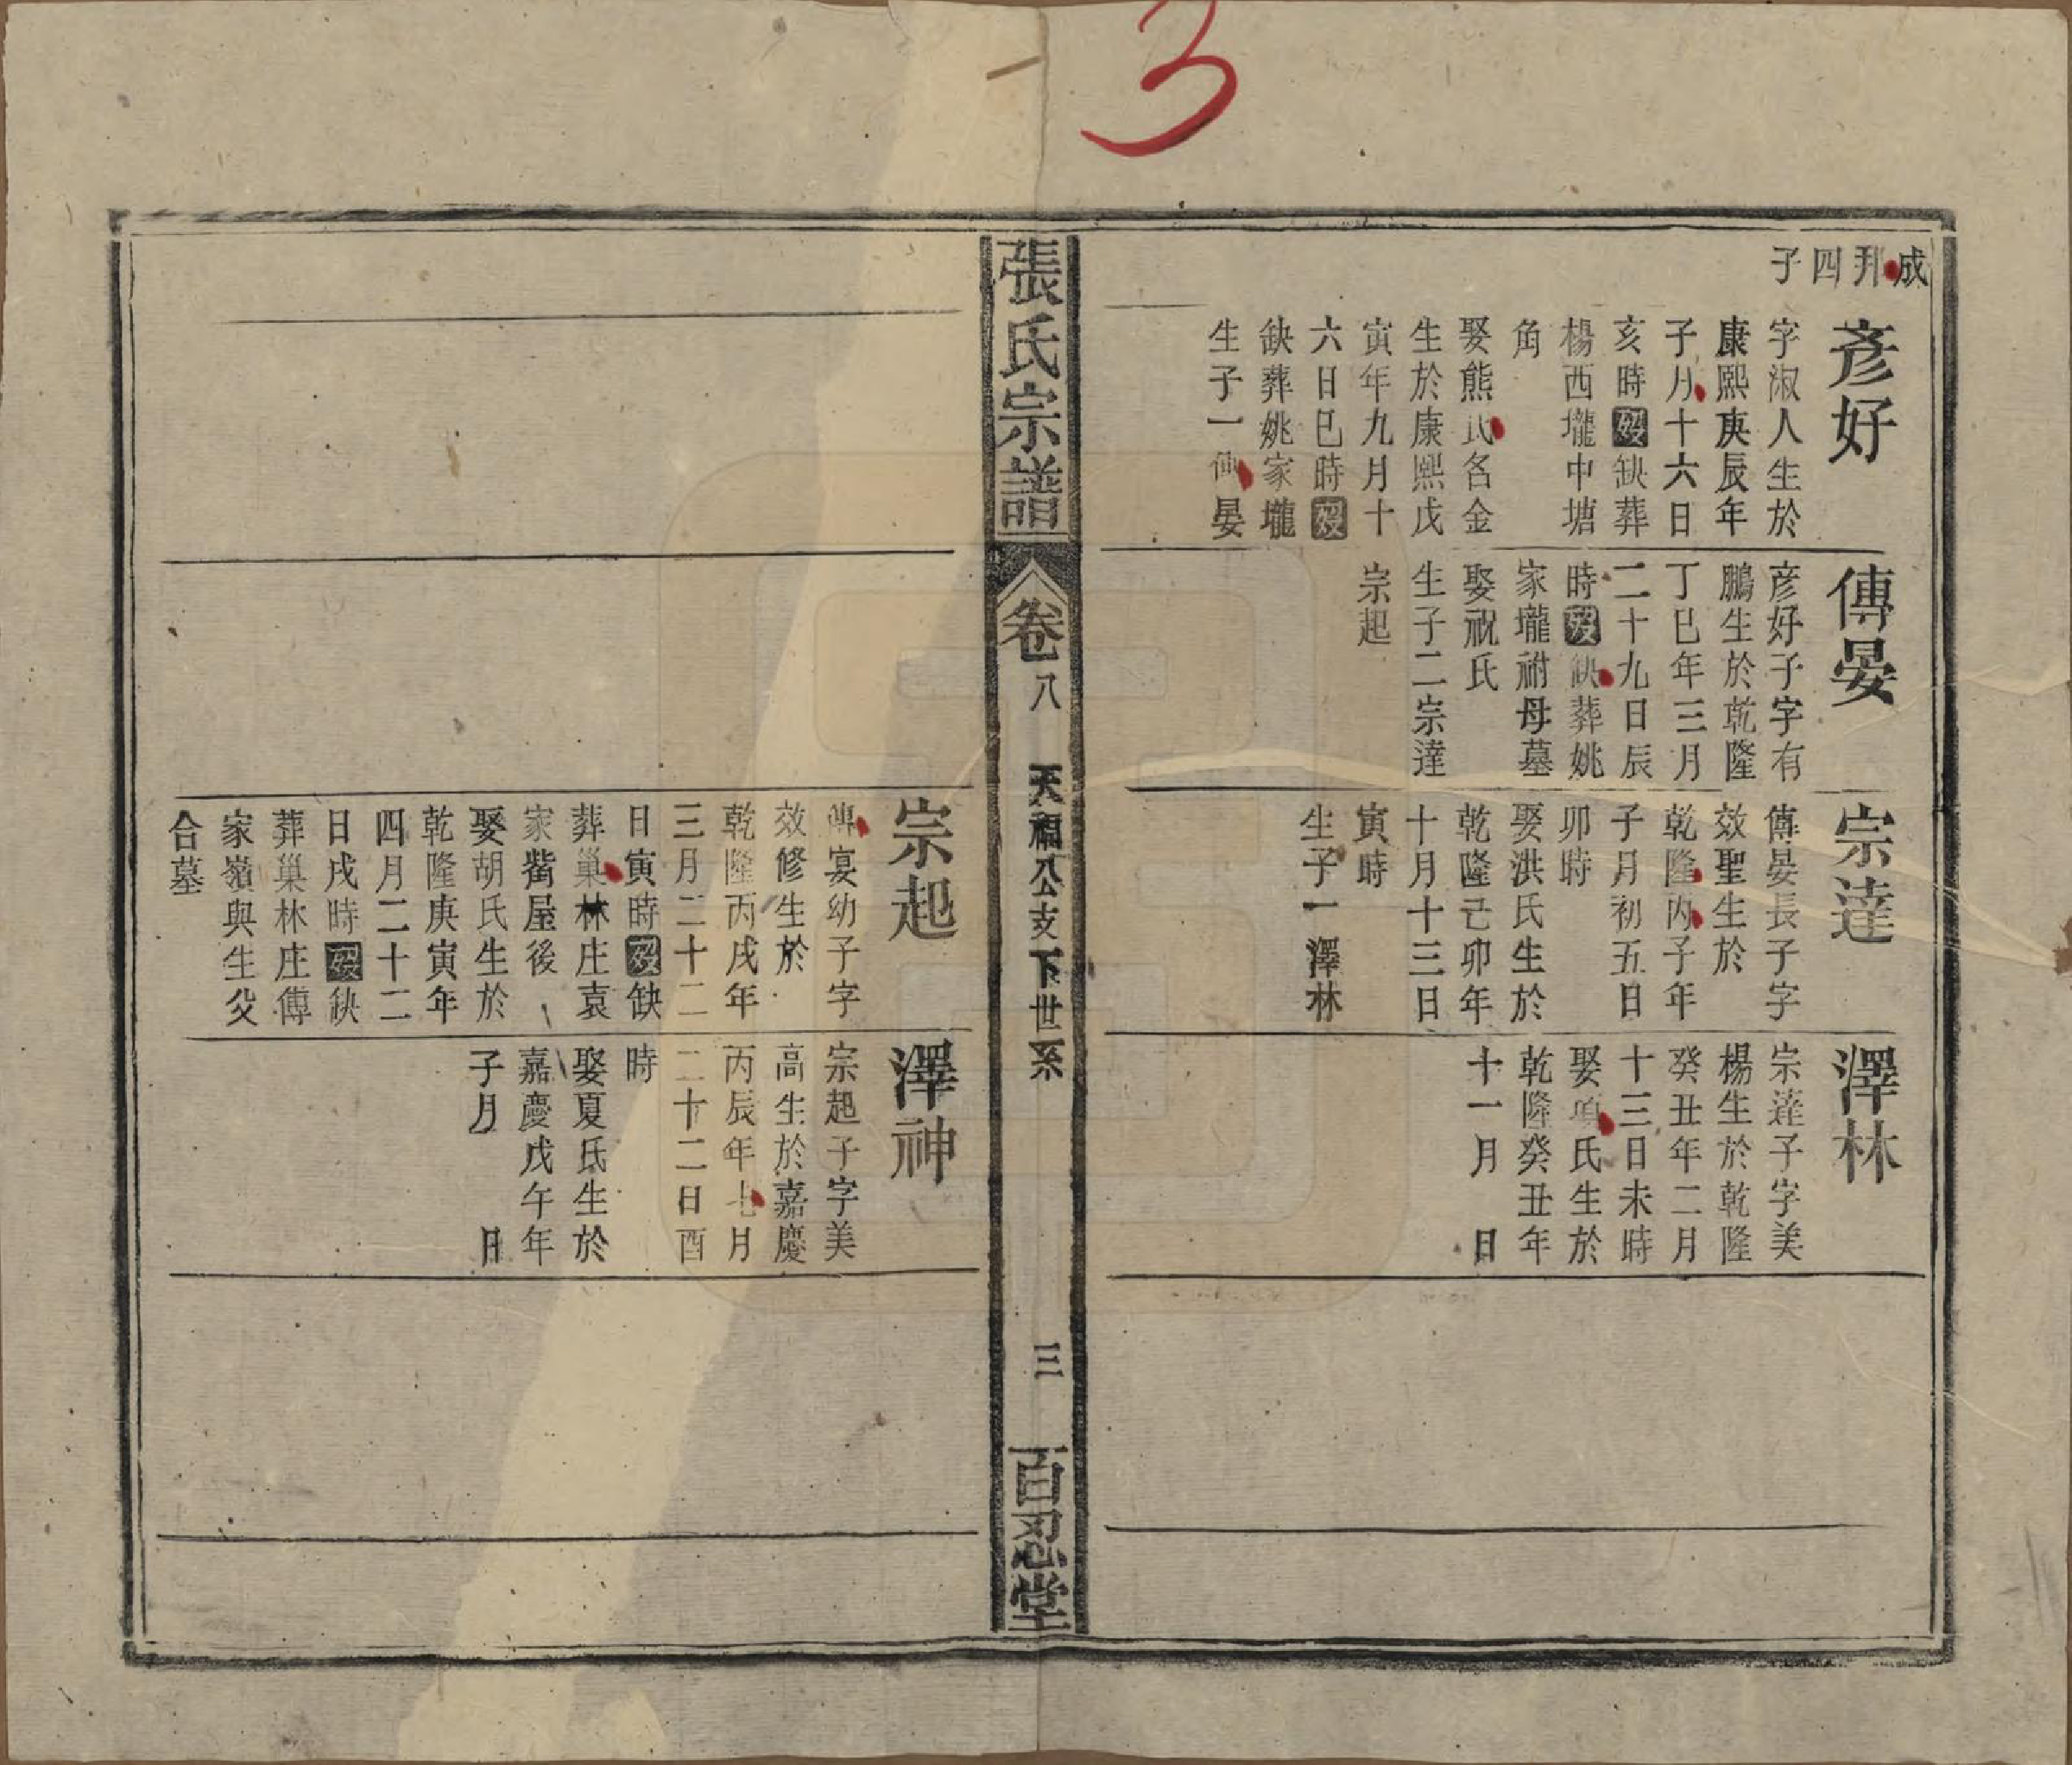 3
成邦四子
彥好
字淑人生於
康熙庚辰年
子月十六日
亥時歿缺葬
楊西壠中塘
角
娶熊氏名金
生於康熙戊
寅年九月十
六日巳時歿
缺葬姚家壠
生子一傳晏
傳晏
彥好子字有
鵬生於乾隆
丁巳年三月
二十九日辰
時歿缺葬姚
家壠祔母墓
娶祝氏
生子二宗達
宗起
宗達
傳晏長子字
效聖生於
乾隆丙子年
子月初五日
卯時
娶洪氏生於
乾隆己卯年
十月十三日
寅時
生子一澤林
澤林
宗達子字美
楊生於乾隆
癸丑年二月
十三日未時
娶項氏生於
乾隆癸丑年
十一月 日
張氏宗譜
卷八
天福公支下世系
三
百忍堂
宗起
傳宴幼子字
效修生於
乾隆丙戌年
三月二十二
日寅時歿缺
葬巢林庄袁
家嘴屋後
娶胡氏生於
乾隆庚寅年
四月二十二
日戌時歿缺
葬巢林庄傅
家嶺與生父
合墓
澤神
宗起子字美
高生於嘉慶
丙辰年七月
二十二日酉
時
娶夏氏生於
嘉慶戊午年
子月 日